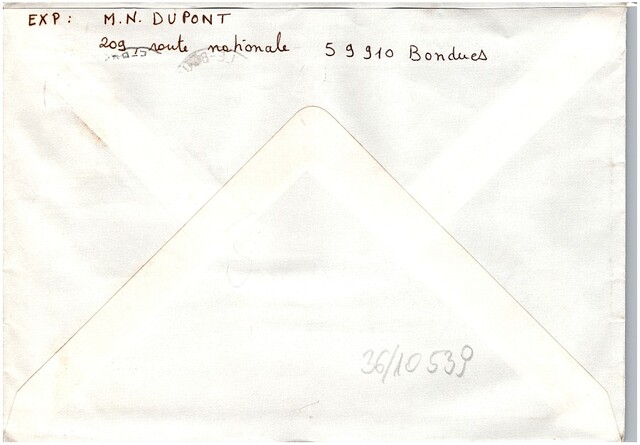 EXP: M.N. DUPONT
209 route nationale 59910 Bondues
36/10539